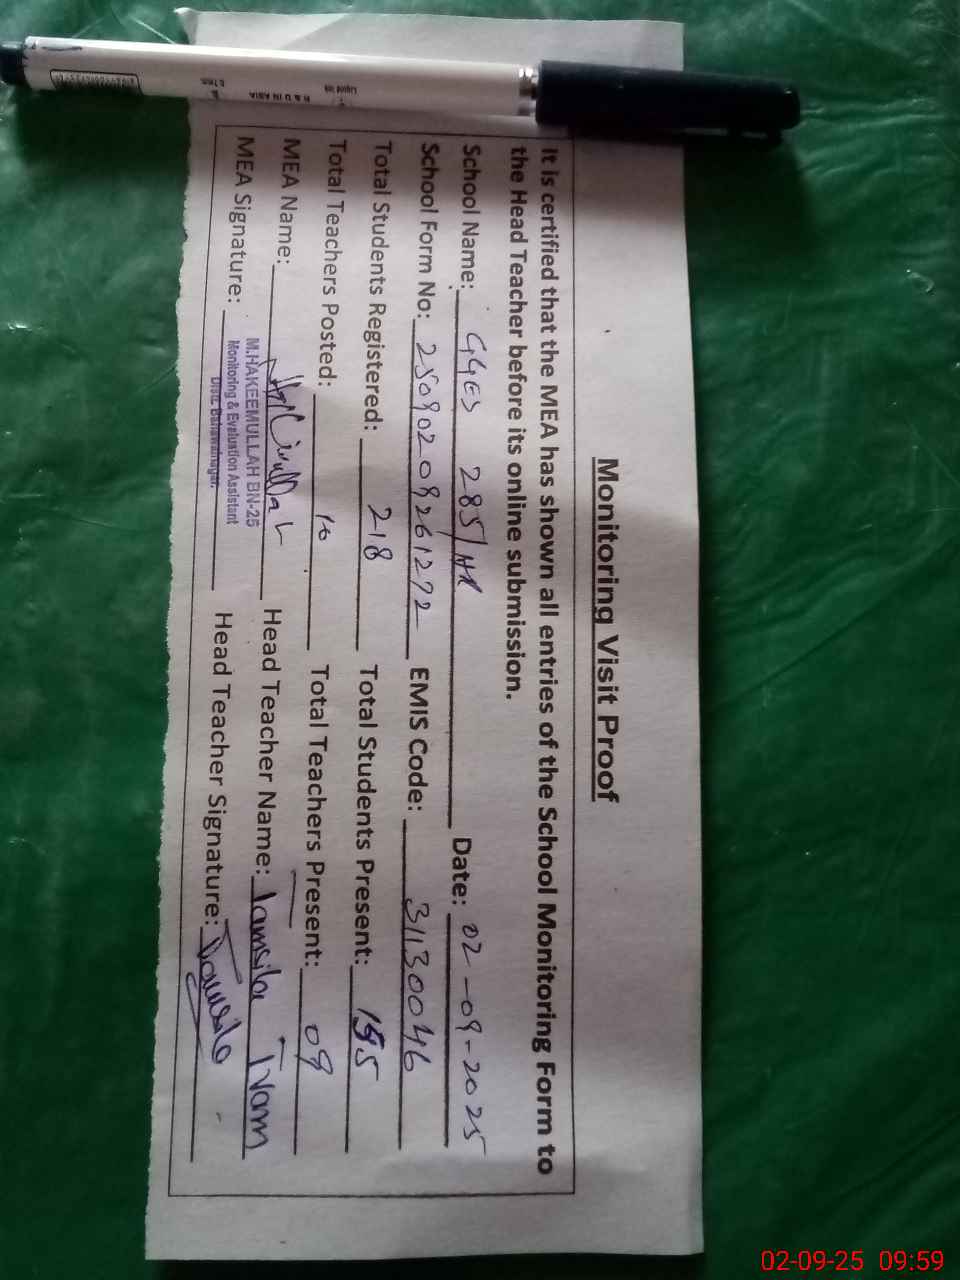 Monitoring Visit Proof
It is certified that the MEA has shown all entries of the School Monitoring Form to
the Head Teacher before its online submission.
School Name: GGES 285/HR Date: 02-09-2025
School Form No: 25090209261272 EMIS Code: 31130046
Total Students Registered: 218 Total Students Present: 195
Total Teachers Posted: 10 Total Teachers Present: 09
MEA Name: Head Teacher Name: Tamsila Iram
M.HAKEEMULLAH BN-25
Monitoring & Evaluation Assistant
Distt. Bahawalnagar.
MEA Signature: Head Teacher Signature: Tamsila
02-09-25 09:59